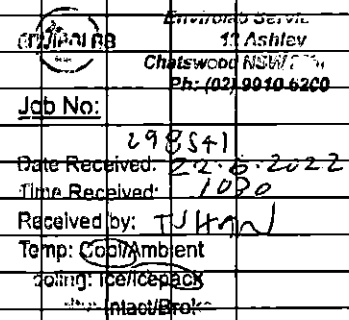 ENVIROLAB
Envirolab Servic
12 Ashley
Chatswood NSW
Ph: (02) 9910 6200
Job No:
298541
Date Received: 22.6.2022
Time Received: 1030
Received by:
Temp: Cool/Ambient
ooling: Ice/Icepack
Intact/Brok